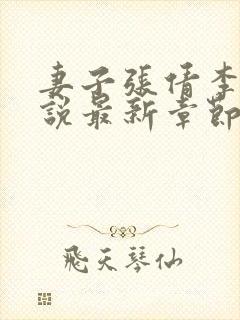 妻子張倩李
說最新章節
飛天琴仙